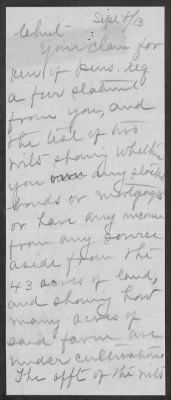 Sept 8/13
Clmt -
Your claim for
ren. of pens. req
a fur statement
from you, and
the test of two
wits showing whether
you own any stocks
bonds or mortgages
or have any income
from any source
aside from the
43 acres of land,
and showing how
many acres of
said farm are
under cultivation
The afft of the wits